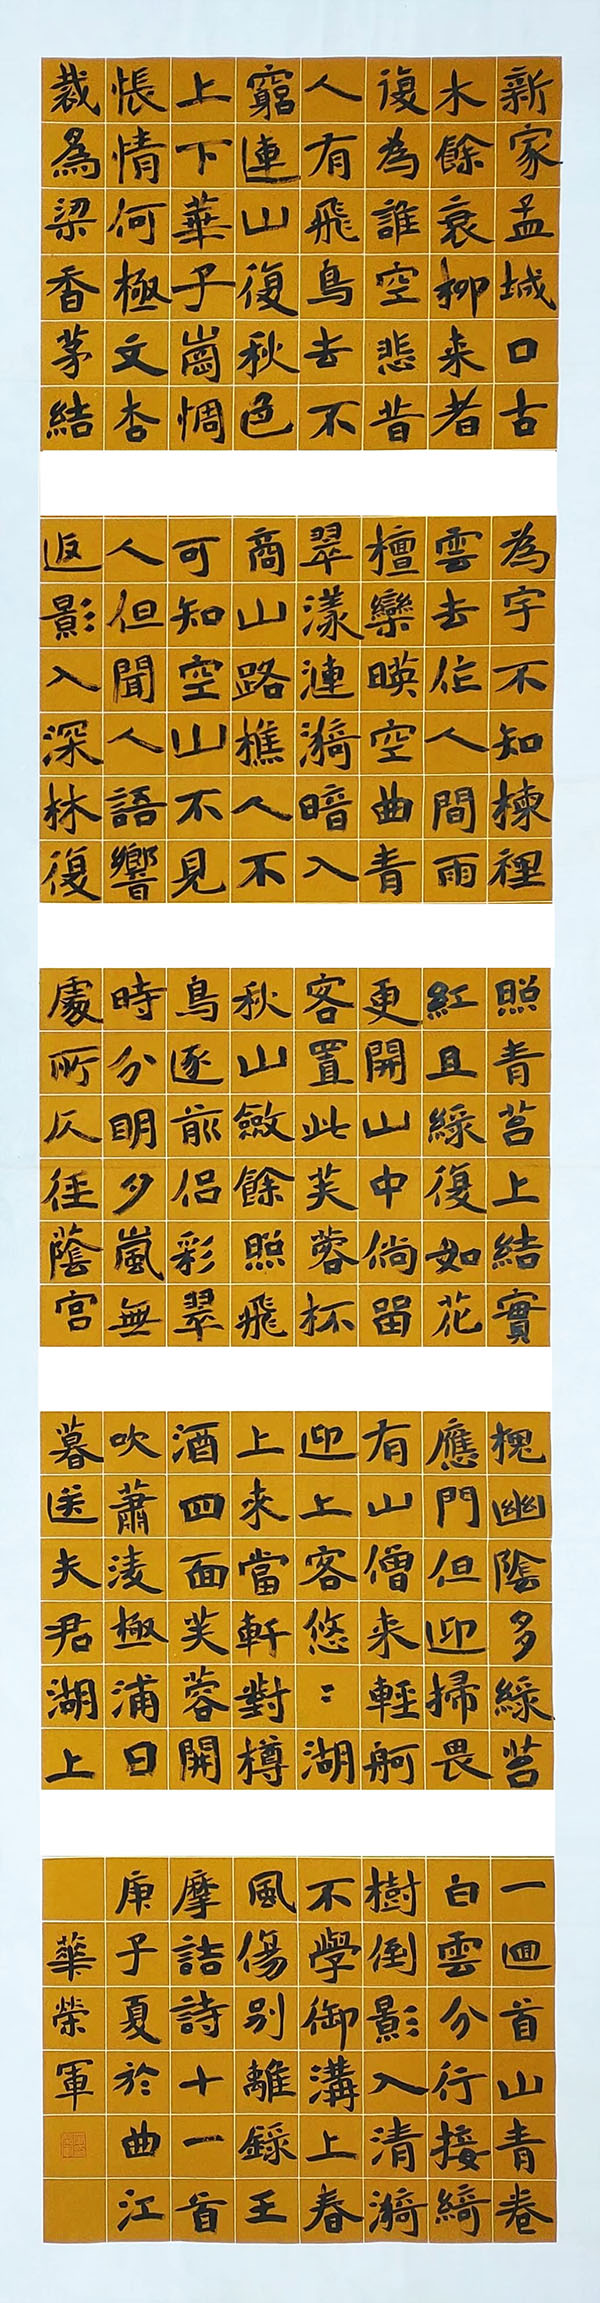 新家孟城口古
木餘衰柳来者
復為誰空悲昔
人有飛鳥去不
窮連山復秋色
上下華子崗惆
悵情何極文杏
裁為梁香茅結
為宇不知棟裡
雲去作人間雨
檀欒暎空曲青
翠漾漣漪暗入
商山路樵人不
可知空山不見
人但聞人語響
返影入深林復
照青苔上結實
紅且綠復如花
更開山中倘留
客置此芙蓉杯
秋山斂餘照飛
鳥逐前侶彩翠
時分明夕嵐無
處所仄徑蔭宮
槐幽陰多綠苔
應門但迎掃畏
有山僧来輕舸
迎上客悠：湖
上來當軒對樽
酒四面芙蓉開
吹蕭凌極浦日
暮送夫君湖上
一迴首山青卷
白雲分行接綺
樹倒影入清漪
不學御溝上春
風傷別離錄王
摩詰詩十一首
庚子夏於曲江
華榮軍